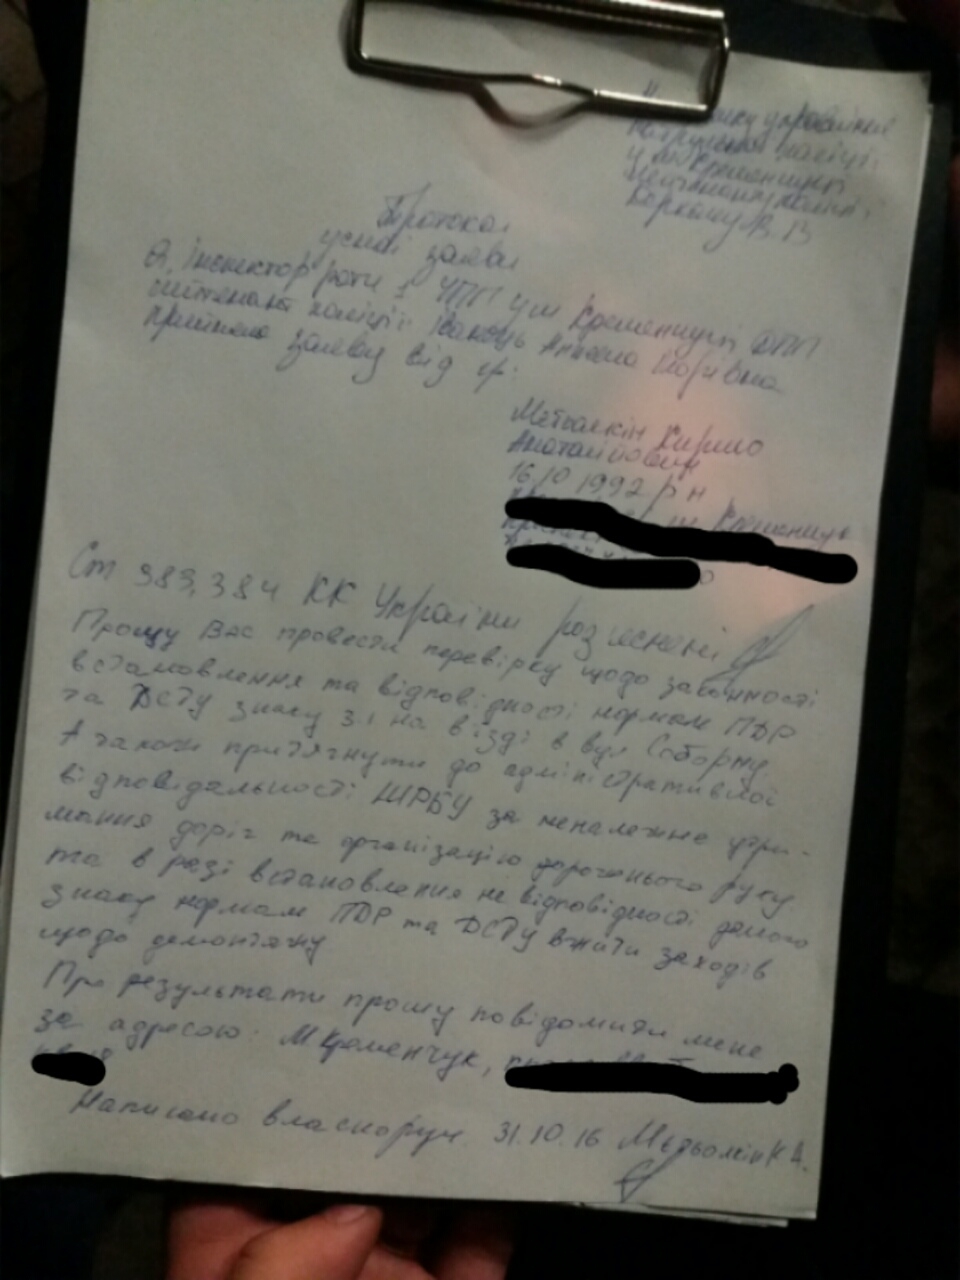 Начальнику управління
патрульної поліції
у м Кременчуці
В. В
Протокол
усної заяви
Я, інспектор роти 1 УПП у м Кременчуці ДПП
лейтенант поліції Юріївна
прийняла заяву від гр.
Кирило
Анатолійович
16.10 1992 р н
м Кременчук
Ст 383, 384 КК України роз'яснені
Прошу Вас провести перевірку щодо законності
встановлення та відповідності нормам ПДР
та ДСТУ знаку 3.1 на в'їзді в вул Соборну
А також притягнути до адміністративної
відповідальності ШРБУ за неналежне утри-
мання доріг та організацію дорожнього руху
та в разі встановлення не відповідності даного
знаку нормам ПДР та ДСТУ вжити заходів
щодо демонтажу
Про результати прошу повідомити мене
за адресою: М Кременчук,
Написано власноруч 31.10.16 К А.